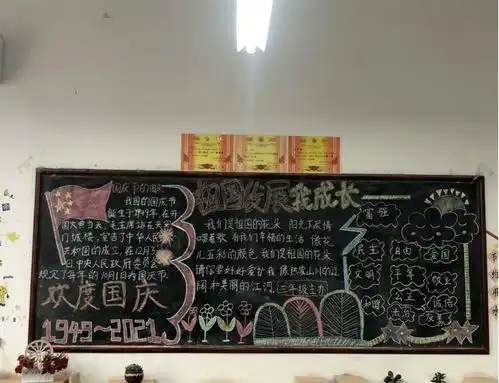 国庆节的由来
我国的国庆节
诞生于1949年,在开
国大典当天,毛主席站在天安
门城楼,宣告了中华人民
共和国的成立,在12月3
日中央人民政府委员会
规定了每年的10月1日为国庆节.
欢度国庆
1949~2021
祖国发展我成长
我们是祖国的花朵 阳光下尽情
唱着歌 看我们幸福的生活 像花
儿五彩的颜色 我们是祖国的花朵
请你要好好爱护我 像热爱山川的辽
阔和美丽的江河
三年级主办
富强
民主
文明
和谐
自由
平等
公正
法治
爱国
敬业
诚信
友善